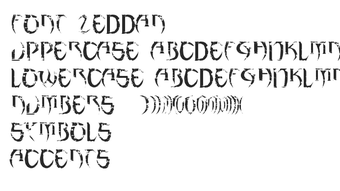 FONT ZEDDAN
UPPERCASE ABCDEFGHIJKLMN
LOWERCASE ABCDEFGHIJKLMN
NUMBERS
SYMBOLS
ACCENTS